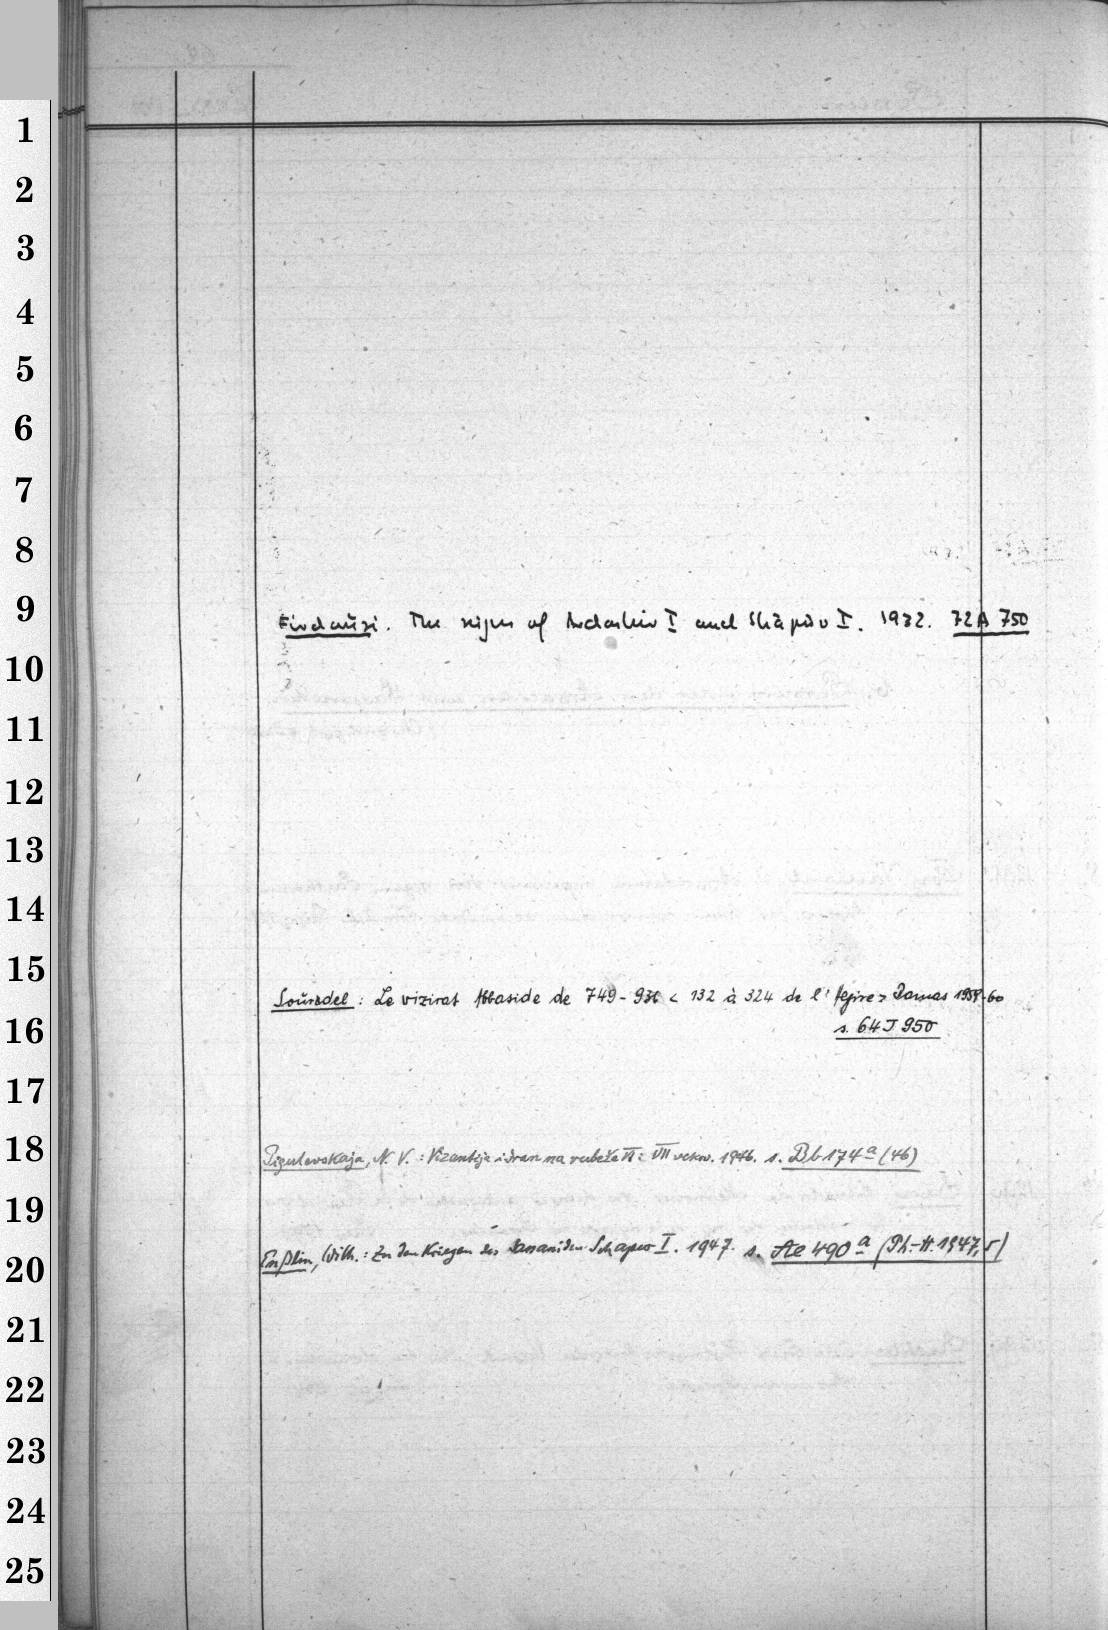 1
2
3
4
5
6
7
8
9
Firdausi. The reign of Ardashir I and Shāpūr I. 1932. 72 A 750
10
11
12
13
14
15
Sourdel : Le vizirat Abbaside de 749-936 < 132 à 324 de l'hégire > Damas 1959-60
16
s. 64 J 950
17
18
Pigulevskaja, N. V. : Vizantija i Iran na rubeže VI i VII vekov. 1946. s. Bb 174 a (46)
19
Enßlin, Wilh. : Zu den Kriegen des Sassaniden Schapur I. 1947. s. Ac 490 a (Ph.-H. 1947, 5)
20
21
22
23
24
25